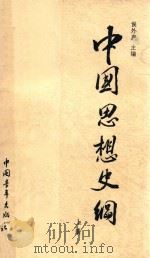 侯外庐 主编
中国思想史纲
中国青年出版社